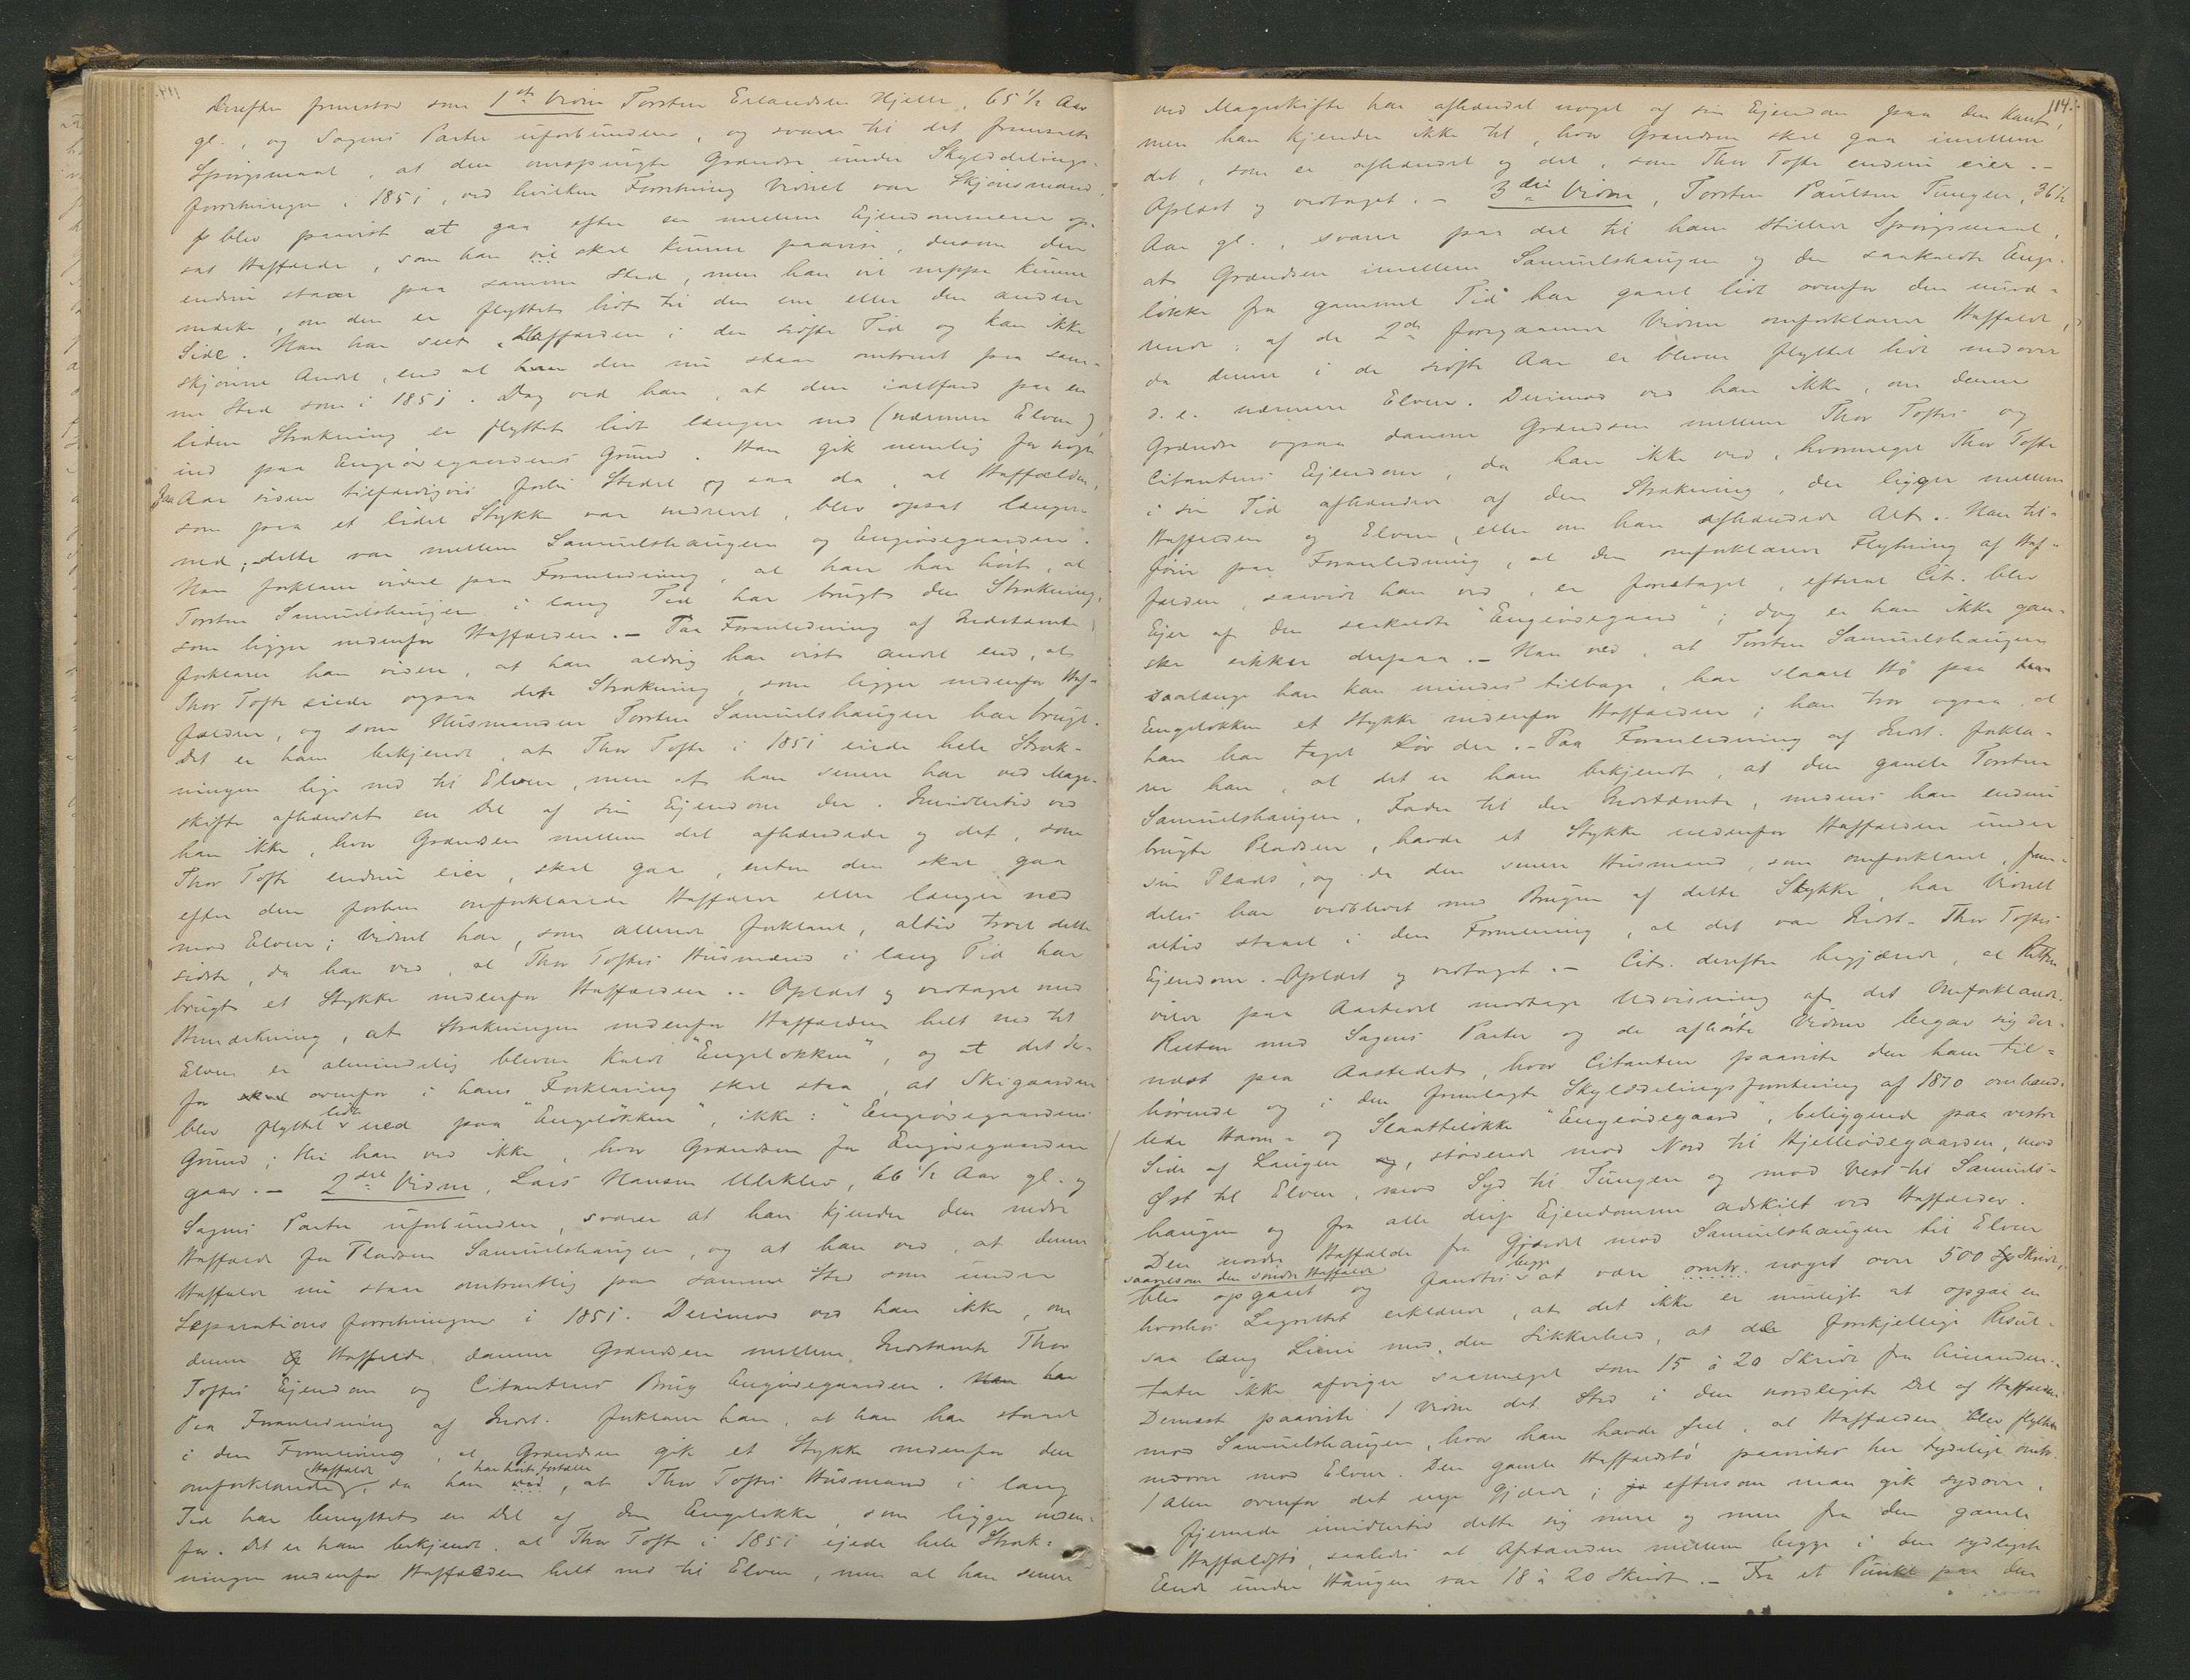 Derefter fremstod som 1ste Vidne Torsten Erlandsen Hjelle, 65 1/2 Aar
gl., og Sagens Parter uforbunden, og svarer til det fremsatte
Spørgsmaal, at den omspurgte Grændse under Skylddelings-
forretningen i 1851, ved hvilken Forretning Vidnet var Skjønsmand,
blev paavist at gaa efter en mellem Ejendommene op-
sat Haffælde, som han vil skal kunne paavise, dersom den
endnu staar paa samme Sted, men han vil neppe kunne
mærke, om den er flyttet lidt til den ene eller den anden
Side. Han har seet Haffælden i den sidste Tid og kan ikke
skjønne Andet, end at den nu staar omtrent paa sam-
me Sted som i 1851. Dog ved han, at den ialfald paa en
liden Strækning er flyttet lidt længer ned (nærmere Elven),
ind paa Engiødegaardens Grund. Han gik nemlig for nogle
faa Aar siden tilfældigvis forbi Stedet og saa da, at Haffælden,
som paa et lidet Stykke var nedrevet, blev opsat længer
ned; dette var mellem Samuelshaugen og Engiødegaarden.
Han forklarer videre paa Foranledning, at han har hørt, at
Torsten Samuelshaugen i lang Tid har brugt den Strækning,
som ligger nedenfor Haffælden. – Paa Foranledning af Indstævnte
forklarer han viden, at han aldrig har vist andet end, at
Thor Tofte eiede ogsaa den Strækning, som ligger nedenfor Haf-
fælden, og som Husmanden Torsten Samuelshaugen har brugt.
Det er ham bekjendt, at Thor Tofte i 1851 eiede hele Stræk-
ningen lige ned til Elven, men at han senere har ved Mage-
skifte afhændet en Del af sin Ejendom der. Imidlertid ved
han ikke, hvor Grændsen mellem det afhændede og det, som
Thor Tofte endnu eier, skal gaa, enten den skal gaa
efter den forhen omforklarede Haffælde eller længer ned
mod Elven; Vidnet har, som allerede forklaret, altid troet dette
sidste, da han ved, at Thor Toftes Husmænd i lang Tid har
brugt et Stykke nedenfor Haffælden. – Oplæst og vedtaget med
Bemærkning, at Strækningen nedenfor Haffælden helt ned til
Elven er almindelig bleven kaldt "Engeløkken", og at det der-
for ovenfor i hans Forklaring skal staa, at Skigaarden
blev flyttet lidt ned paa "Engeløkken", ikke: "Engiødegaardens
Grund; thi han ved ikke, hvor Grændsen for Engiødegaarden
gaar. – 2det Vidne, Lars Hansen Ulekleiv, 66 1/2 Aar gl. og
Sagens Parter uforbunden, svarer at han kjender den nedre
Haffælde for Pladsen Samuelshaugen, og at han ved, at denne
Haffælde nu staar omtrentlig paa samme Sted som under
Separationsforretningen i 1851. Derimod ved han ikke, om
denne Haffælde danner Grændsen mellem Indstævnte Thor
Toftes Ejendom og Citantens Brug Engiødegaarden. Han har
Paa Foranledning af Indst. forklarer han, at han har staaet
i den Formening, at Grændsen gik et Stykke nedenfor den
omforklarede Haffælde, da han ved har hørt fortælle, at Thor Toftes Husmænd i lang
Tid har benyttet en Del af den Engeløkke, som ligger neden-
for. Det er ham bekjendt, at Thor Tofte i 1851 ejede hele Stræk-
ningen nedenfor Haffælden helt ned til Elven, men at han senere
114.
ved Mageskifte har afhændet noget af sin Ejendom paa den Kant,
men han kjender ikke til, hvor Grændsen skal gaa imellem
det, som er afhændet og det, som Thor Tofte endnu eier. –
Oplæst og vedtaget. – 3die Vidne, Torsten Paulsen Tungen, 36 1/2
Aar gl., svarer paa det til ham stillede Spørgsmaal,
at Grændsen imellem Samuelshaugen og den saakaldte Enge-
løkke fra gammel Tid har gaaet lidt ovenfor den nuvæ-
rende af de 2de foregaaende Vidner omforklarede Haffælde,
da denne i de sidste Aar er bleven flyttet lidt nedover
d. e. nærmere Elven. Derimod ved han ikke, om denne
Grændse ogsaa danner Grændsen mellem Thor Toftes og
Citantens Ejendom, da han ikke ved, hvormeget Thor Tofte
i sin Tid afhændede af den Strækning, der ligger mellem
Haffælden og Elven, eller om han afhændede Alt. Han til-
føier paa Foranledning, at den omforklarede Flytning af Haf-
fælden, saavidt han ved, er foretaget, efterat Cit. blev
Ejer af den saakaldte "Engiødegaard"; dog er han ikke gan-
ske sikker derpaa. – Han ved, at Torsten Samuelshaugen
saalænge han kan mindes tilbage, har slaaet Hø paa
Engeløkken et Stykke nedenfor Haffælden; han tror ogsaa, at
han har taget Løv der. – Paa Foranledning af Indst. forkla-
rer han, at det er ham bekjendt, at den gamle Torsten
Samuelshaugen, Fader til den Indstævnte, medens han endnu
brugte Pladsen, havde et Stykke nedenfor Haffælden under
sin Plads, og da den senere Husmand, som omforklaret, frem-
deles har vedblevet med Brugen af dette Stykke, har Vidnet
altid staaet i den Formening, at det var Indst. Thor Toftes
Ejendom. – Oplæst og vedtaget. – Cit. derefter begjærede, at Retten
vilde paa Aastedet modtage Udvisning af det Omforklarede.
Retten med Sagens Parter og de afhørte Vidner begav sig der-
næst paa Aastedet, hvor Citanten paaviste den ham til-
hørende og i den fremlagte Skylddelingsforretning af 1870 omhand-
lede Havne- og Slaatteløkke "Engiødegaard", beliggende paa vestre
Side af Laugen, stødende mod Nord til Hjelleødegaarden, mod
Øst til Elven, mod Syd til Tungen og mod Vest til Samuels-
haugen og fra alle disse Ejendomme adskilt ved Haffælder.
Den nordre Haffælde fra Gjærdet mod Samuelshaugen til Elven
saavelsom den søndre Haffælde
blev opgaaet og fandtes begge at være omtr. noget over 500 Skridt,
hvorhos Lagrettet erklærede, at det ikke er muligt at opgaa en
saa lang Linie med den Sikkerhed, at de forskjellige Resul-
tater ikke afviger saameget som 15 à 20 Skridt fra hinanden. –
Dernæst paaviste 1 Vidne det Sted i den nordligste Del af Haffælden
mod Samuelshaugen, hvor han havde seet, at Haffælden blev flyttet
nedover mod Elven. Den gamle Haffældstø paavistes her tydelig omtr.
1 Alen ovenfor det nye Gjærde; eftersom man gik sydover,
fjernede imidlertid dette sig mere og mere fra den gamle
Haffældstø, saaledes at Afstanden mellem begge i den sydligste
Ende under Haugen var 18 à 20 Skridt. – Fra et Punkt paa den